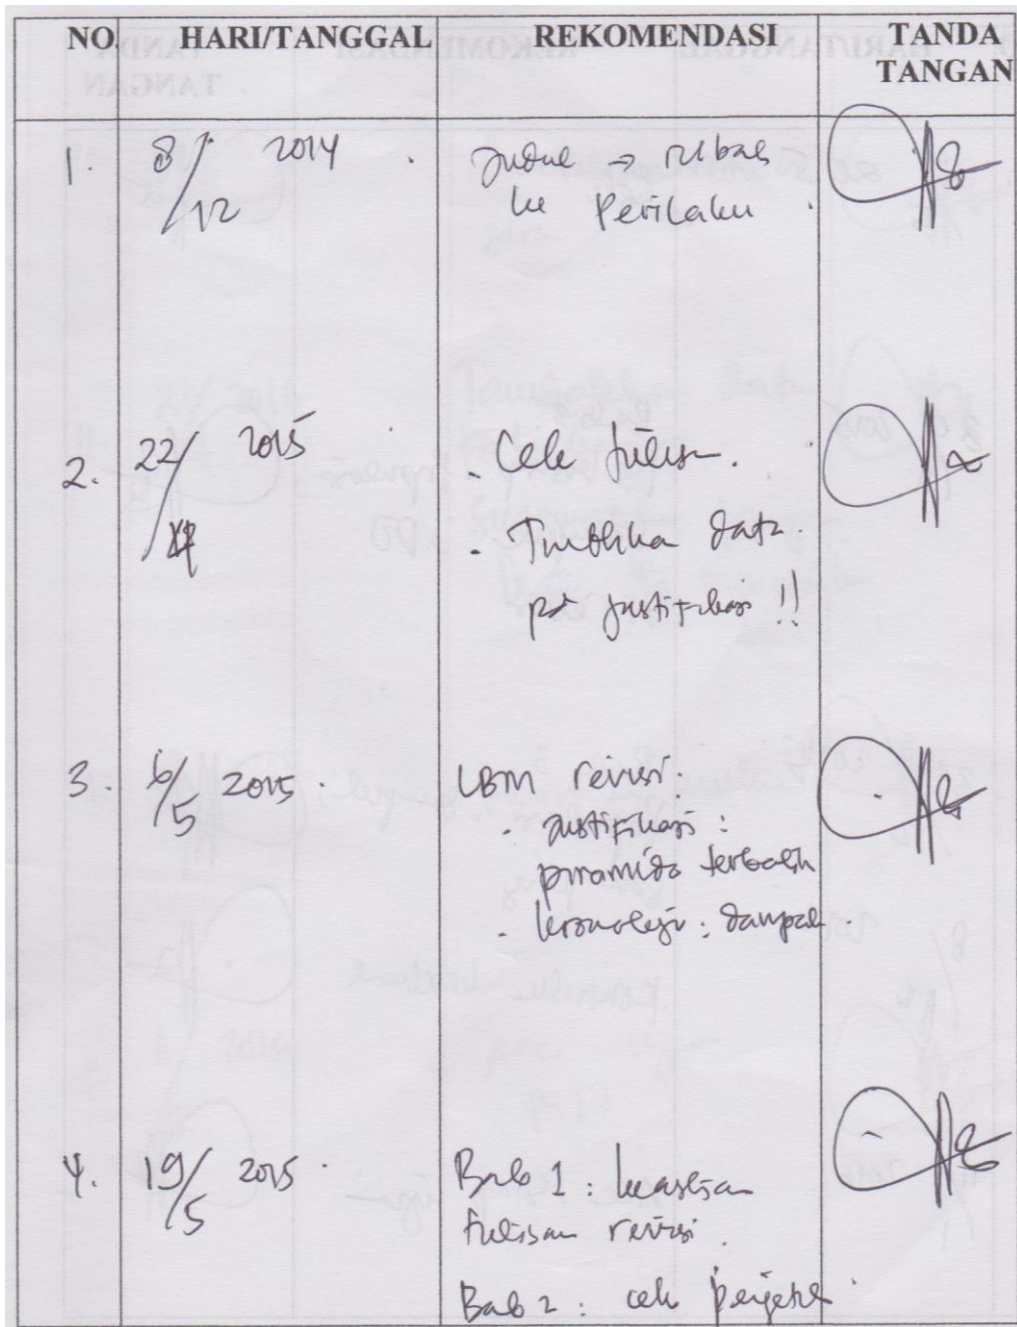 NO. HARI/TANGGAL REKOMENDASI TANDA TANGAN
1. 8/12 2014 . Judul → rubah
ke Perilaku .
2. 22/ 2015 . - Cek tulisan .
- data .
pd justifikasi !!
3. 6/5 2015 . LBM revisi .
- justifikasi :
piramida terbalik
- kronologi : dampak .
4. 19/5 2015 . Bab 1 : keaslian
tulisan revisi .
Bab 2 : cek .